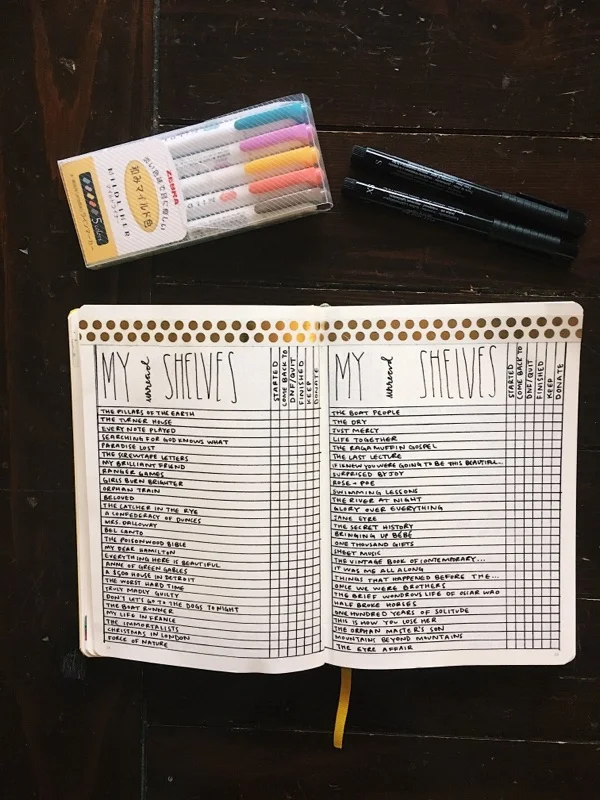 ZEBRA
MILDLINER
マイルドライナー
和みマイルド色
5 colors
S
S
MY unread SHELVES
STARTED
COME BACK TO
DNF/QUIT
FINISHED
KEEP
DONATE
THE PILLARS OF THE EARTH
THE TURNER HOUSE
EVERY NOTE PLAYED
SEARCHING FOR GOD KNOWS WHAT
PARADISE LOST
THE SCREWTAPE LETTERS
MY BRILLIANT FRIEND
RANGER GAMES
GIRLS BURN BRIGHTER
ORPHAN TRAIN
BELOVED
THE CATCHER IN THE RYE
A CONFEDERACY OF DUNCES
MRS. DALLOWAY
BEL CANTO
THE POISONWOOD BIBLE
MY DEAR HAMILTON
EVERYTHING HERE IS BEAUTIFUL
ANNE OF GREEN GABLES
A $500 HOUSE IN DETROIT
THE WORST HARD TIME
TRULY MADLY GUILTY
DON'T LET'S GO TO THE DOGS TONIGHT
THE BOAT RUNNER
MY LIFE IN FRANCE
THE IMMORTALISTS
CHRISTMAS IN LONDON
FORCE OF NATURE
MY unread SHELVES
STARTED
COME BACK TO
DNF/QUIT
FINISHED
KEEP
DONATE
THE BOAT PEOPLE
THE DRY
JUST MERCY
LIFE TOGETHER
THE RAGAMUFFIN GOSPEL
THE LAST LECTURE
IF I KNEW YOU WERE GOING TO BE THIS BEAUTIFUL...
SURPRISED BY JOY
ROSE + POE
SWIMMING LESSONS
THE RIVER AT NIGHT
GLORY OVER EVERYTHING
JANE EYRE
THE SECRET HISTORY
BRINGING UP BÉBÉ
ONE THOUSAND GIFTS
SHEET MUSIC
THE VINTAGE BOOK OF CONTEMPORARY...
IT WAS ME ALL ALONG
THINGS THAT HAPPENED BEFORE THE...
ONCE WE WERE BROTHERS
THE BRIEF WONDROUS LIFE OF OSCAR WAO
HALF BROKE HORSES
ONE HUNDRED YEARS OF SOLITUDE
THIS IS HOW YOU LOSE HER
THE ORPHAN MASTER'S SON
MOUNTAINS BEYOND MOUNTAINS
THE EYRE AFFAIR